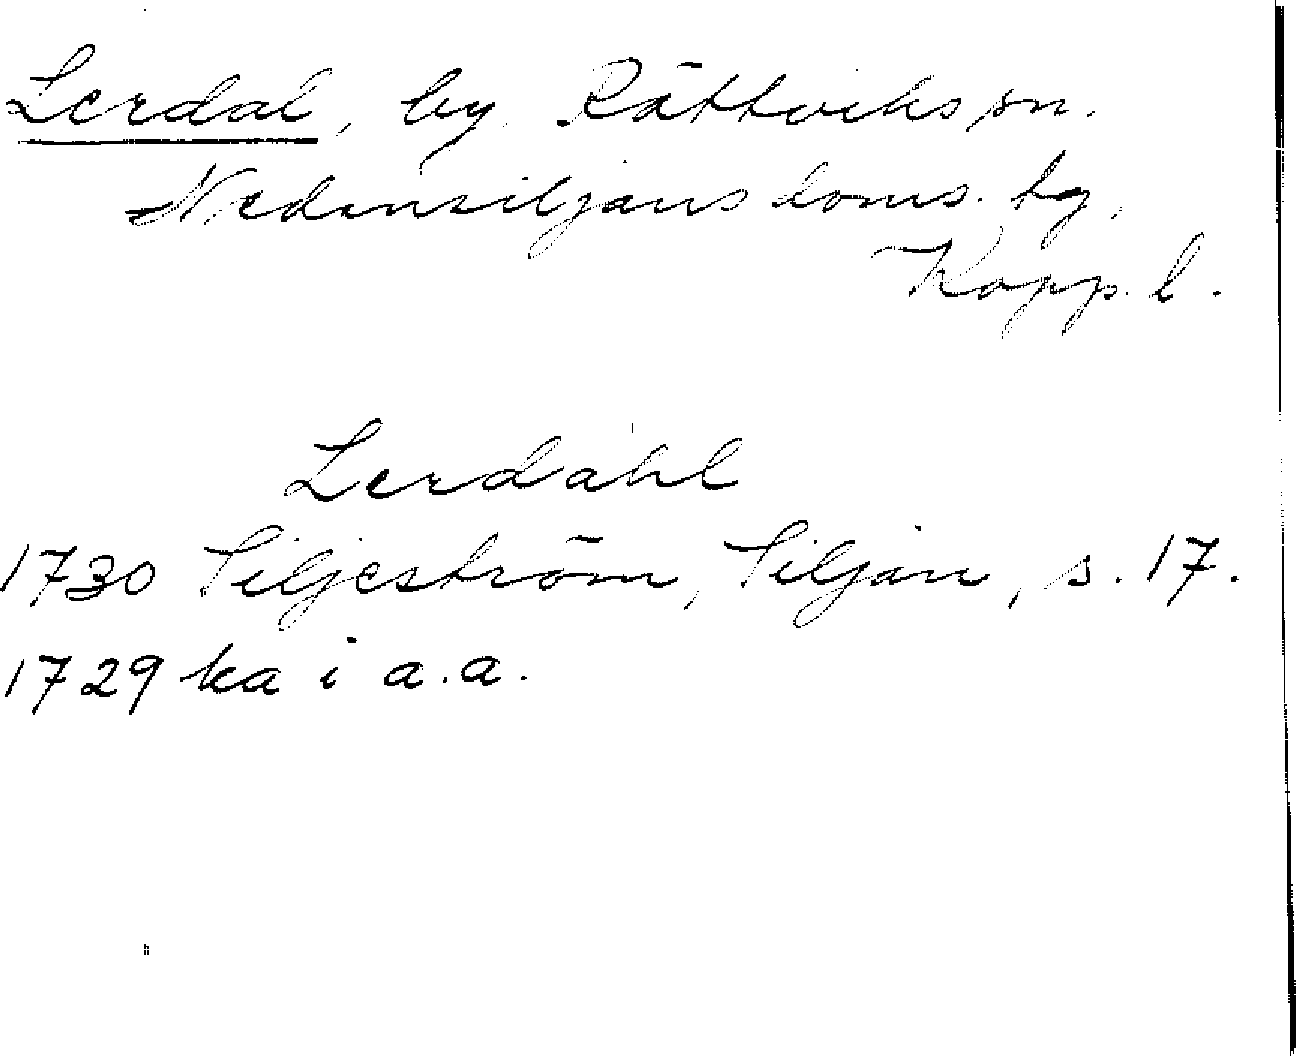 Lerdal, by Rättviks sn.
Nedansiljans doms. tg,
Kopp. l.
Lerdahl
1730 Siljeström, Siljan, s. 17.
1729 ka i a.a.